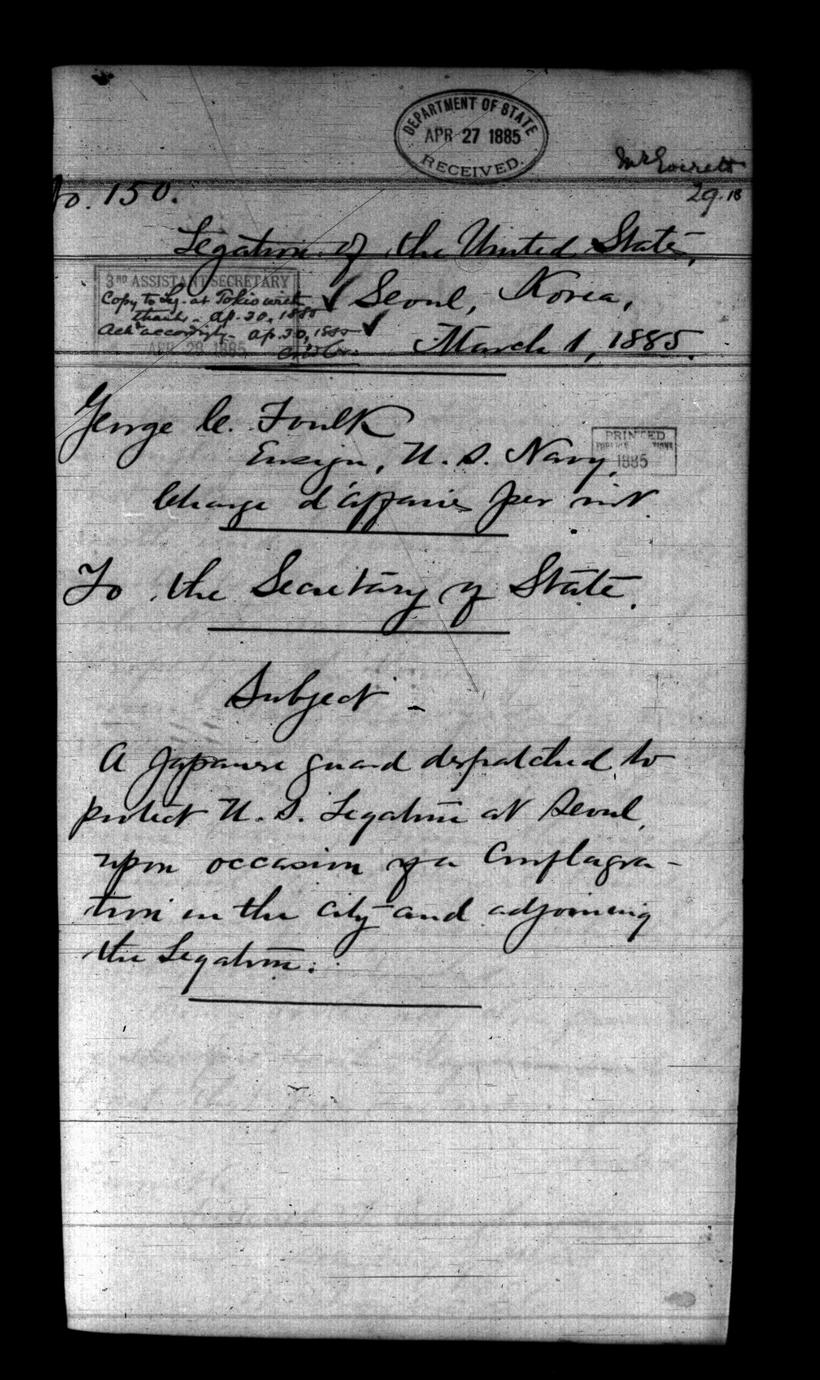 DEPARTMENT OF STATE
APR 27 1885
RECEIVED.
Mr Everett
29.
No. 150.
Legation of the United States,
3RD ASSISTANT SECRETARY
Copy to Leg. at Tokio with
thanks. Ap. 30, 1885
Ackd accordingly. Ap. 30, 1885
APR 29 1885
Seoul, Korea,
March 1, 1885.
George C. Foulk
Ensign, U. S. Navy,
PRINTED
1885
Chargé d'affaires per int.
To the Secretary of State.
Subject -
A Japanese guard despatched to
protect U. S. Legation at Seoul,
upon occasion of a Conflagra-
tion in the city and adjoining
the Legation.